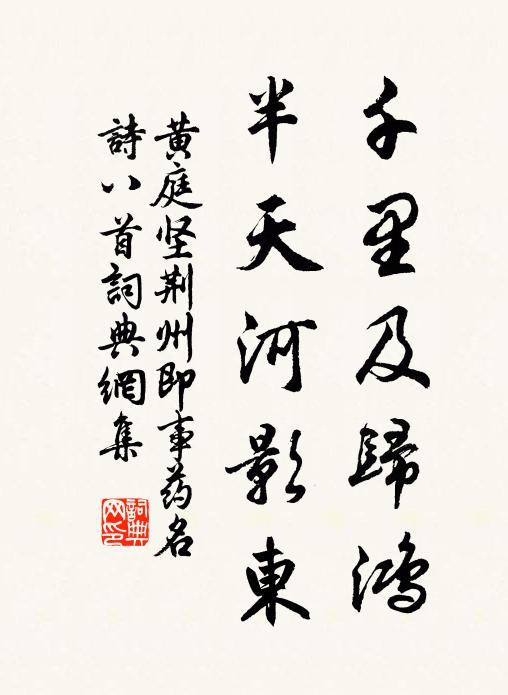 千里及歸鴻
半天河影東
黄庭坚荆州即事药名
詩八首詞典網集
詞典
网印